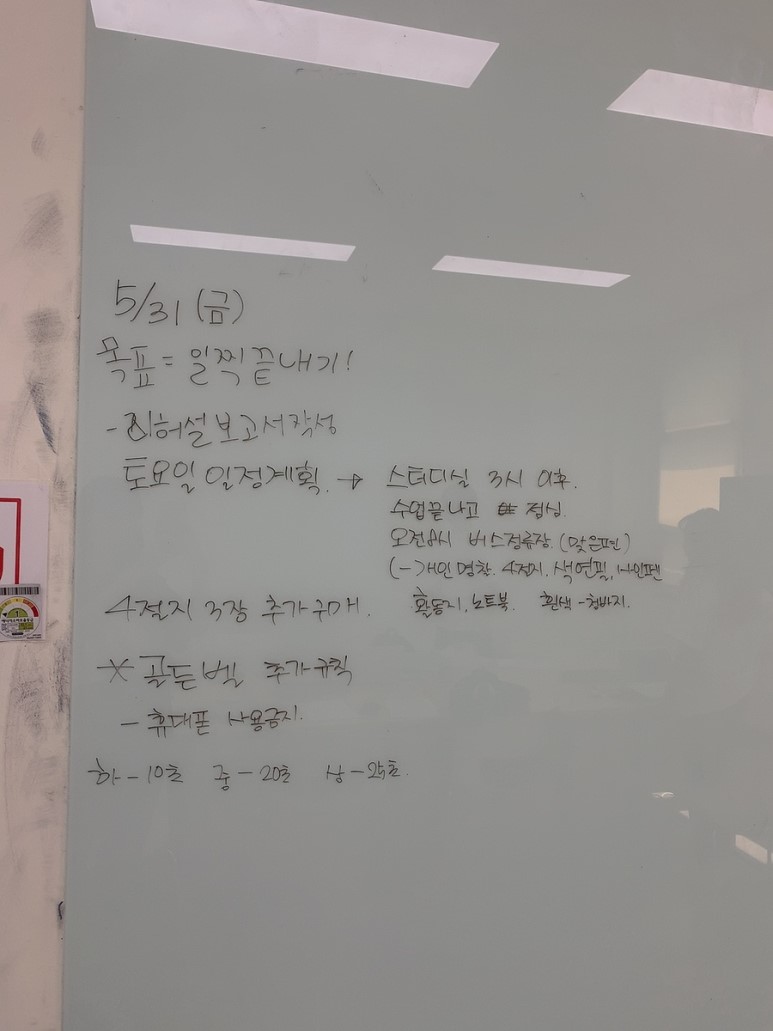 5/31 (금)
목표 = 일찍 끝내기!
- 허설 보고서작성
토요일 일정계획. → 스터디실 3시 이후.
수업끝나고 점심.
오전8시 버스정류장. (맞은편)
(-) 개인 명찰. 4절지. 색연필, 사인펜
활동지, 노트북. 흰색 - 청바지.
4절지 3장 추가구매.
* 골든벨 추가규칙
- 휴대폰 사용금지.
하 - 10초 중 - 20초 상 - 25초.